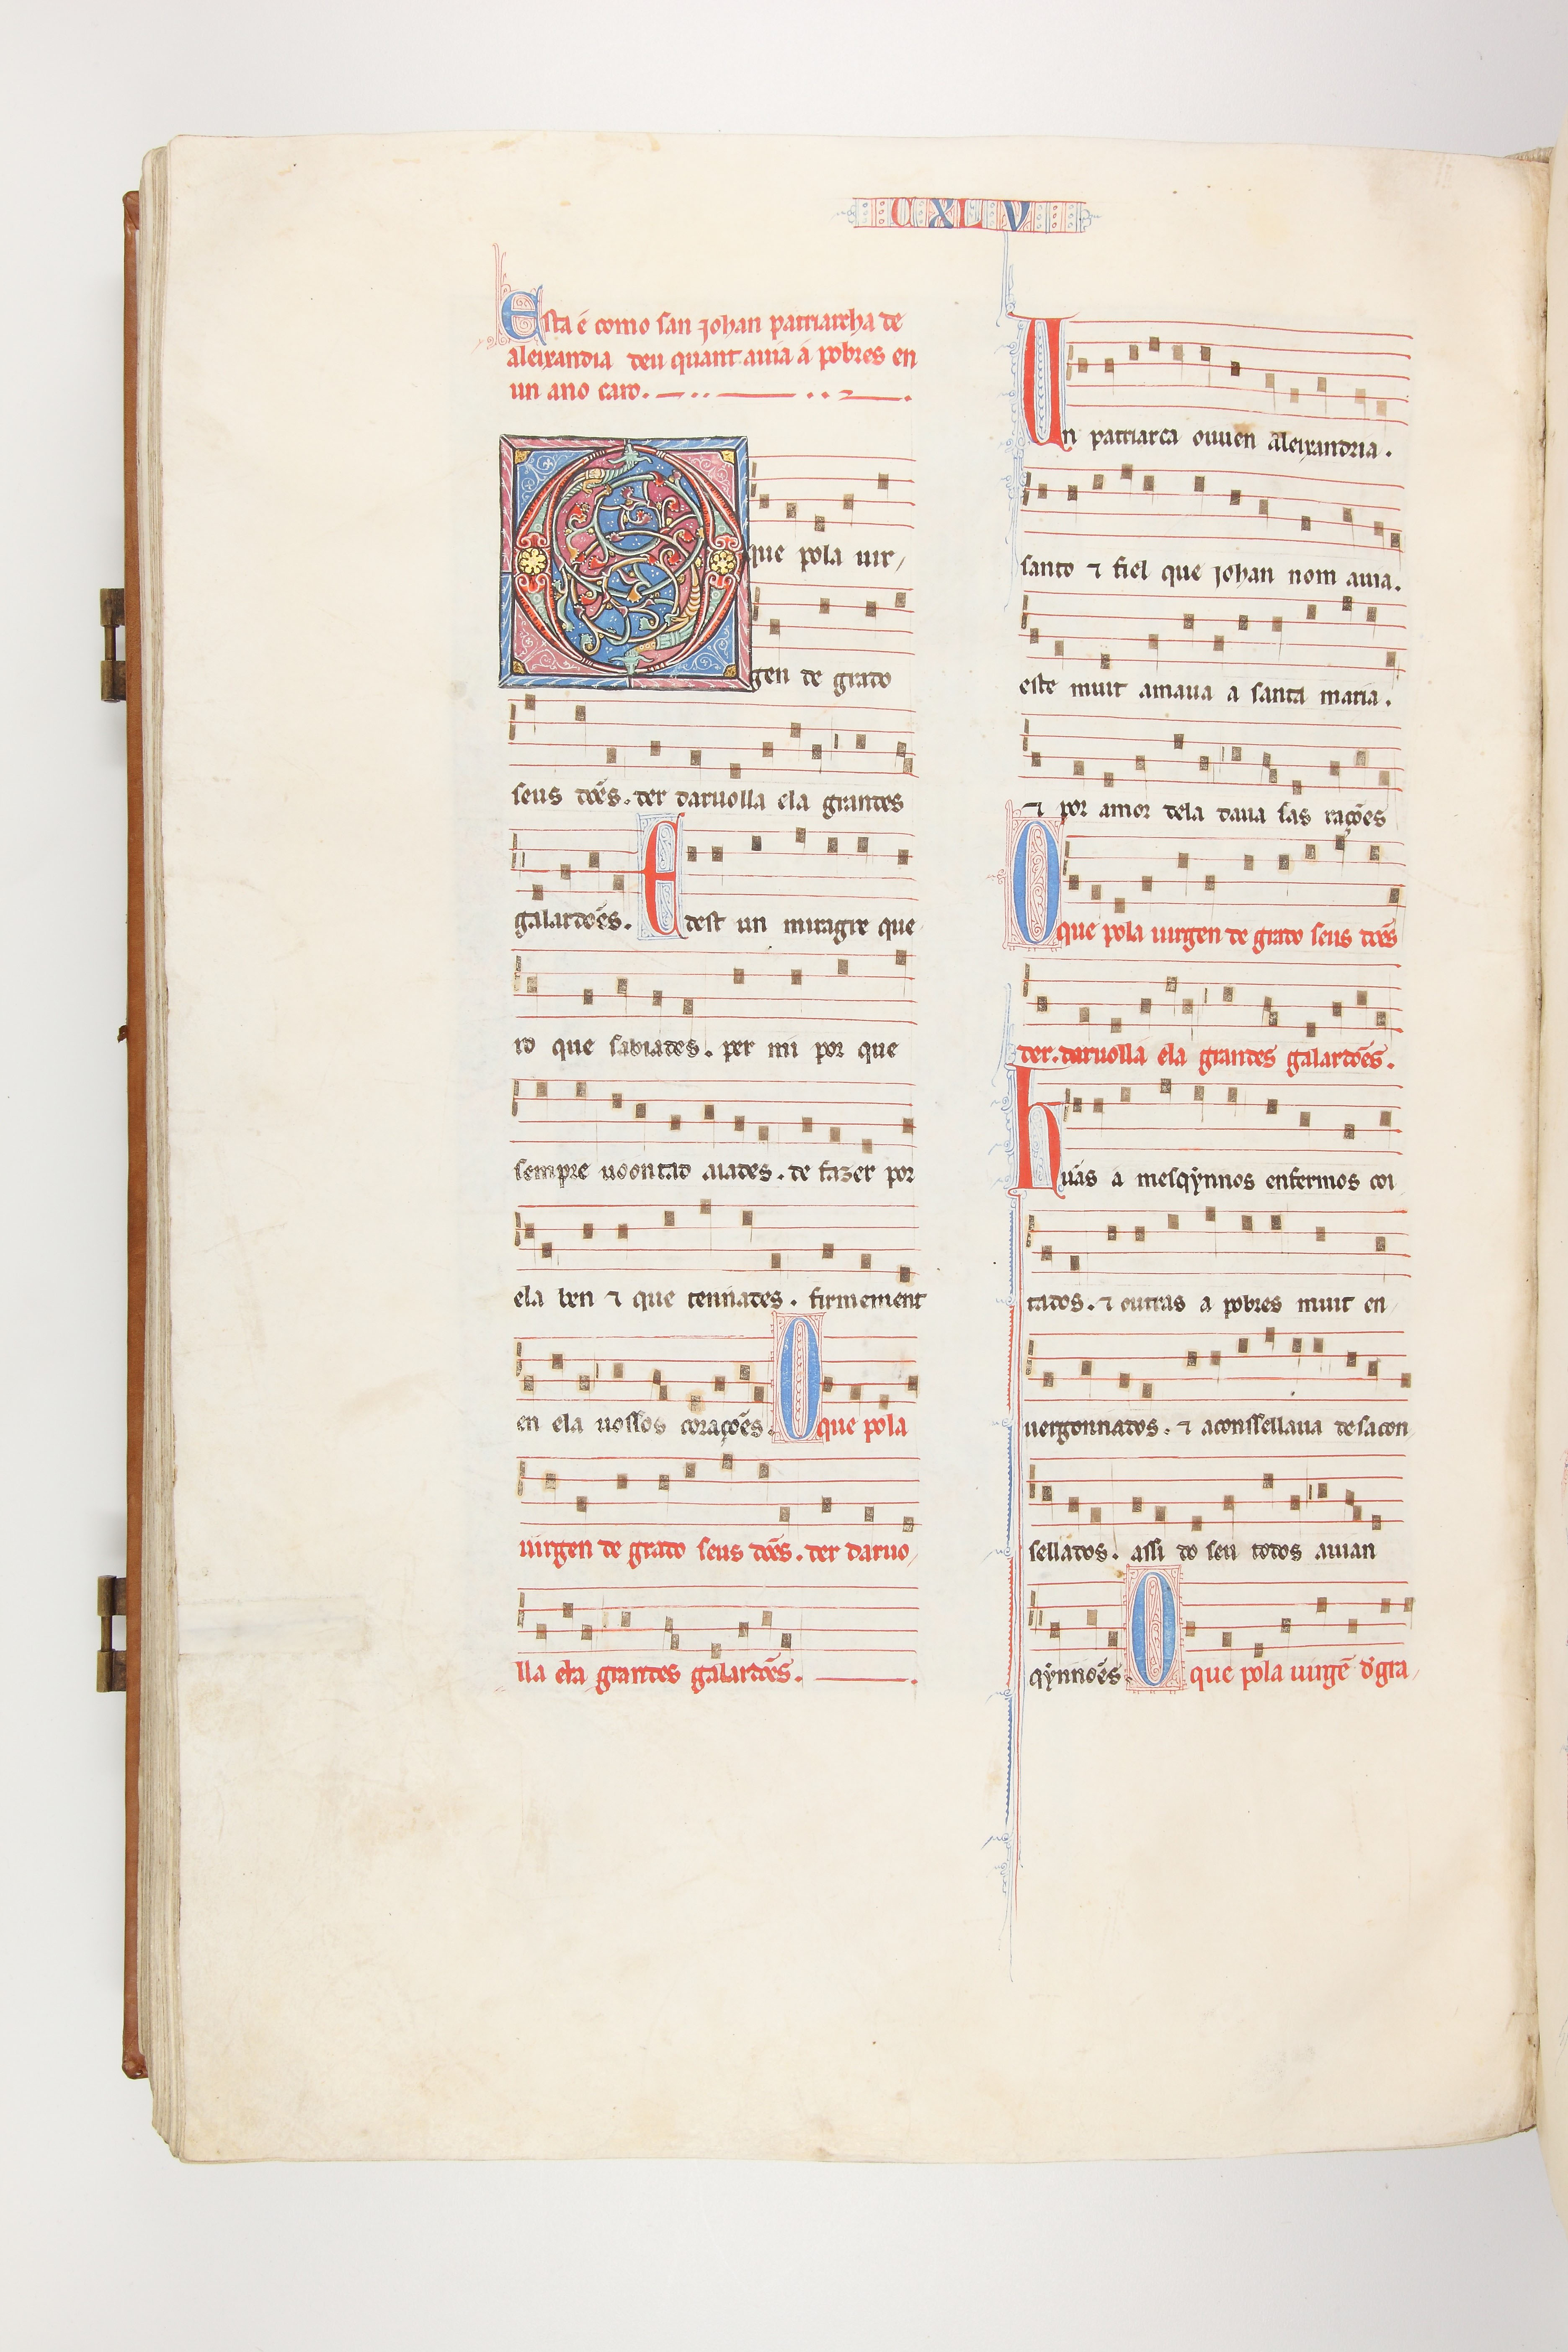 CXLV
Esta é como san Johan patriarcha de
aleixandia deu quant auia a pobres en
un ano caro.
O que pola uir
gen de grado
seus dões. der daruolla ela grandes
galardões. E dest un miragre que
ro que sabiades. per mi por que
sempre uoontad aiades. de fazer por
ela ben ⁊ que tennades. firmement
en ela uossos corações. O que pola
uirgen de grado seus dões. der daruo
lla ela grandes galardões.
Un patriarca ouuen aleixandria.
santo ⁊ fiel que johan nom auia.
este muit amaua a santa maria.
⁊ por amor dela daua sas rações
O que pola uirgen de grado seus dões
der. daruolla ela grandes galardões.
hũas a mesqỹnnos enfermos coi
tados. ⁊ outras a pobres muit en
uergonnados. ⁊ aconssellaua desacon
sellados. assi do seu todos auian
qỹnnões. O que pola uirgẽ d'gra